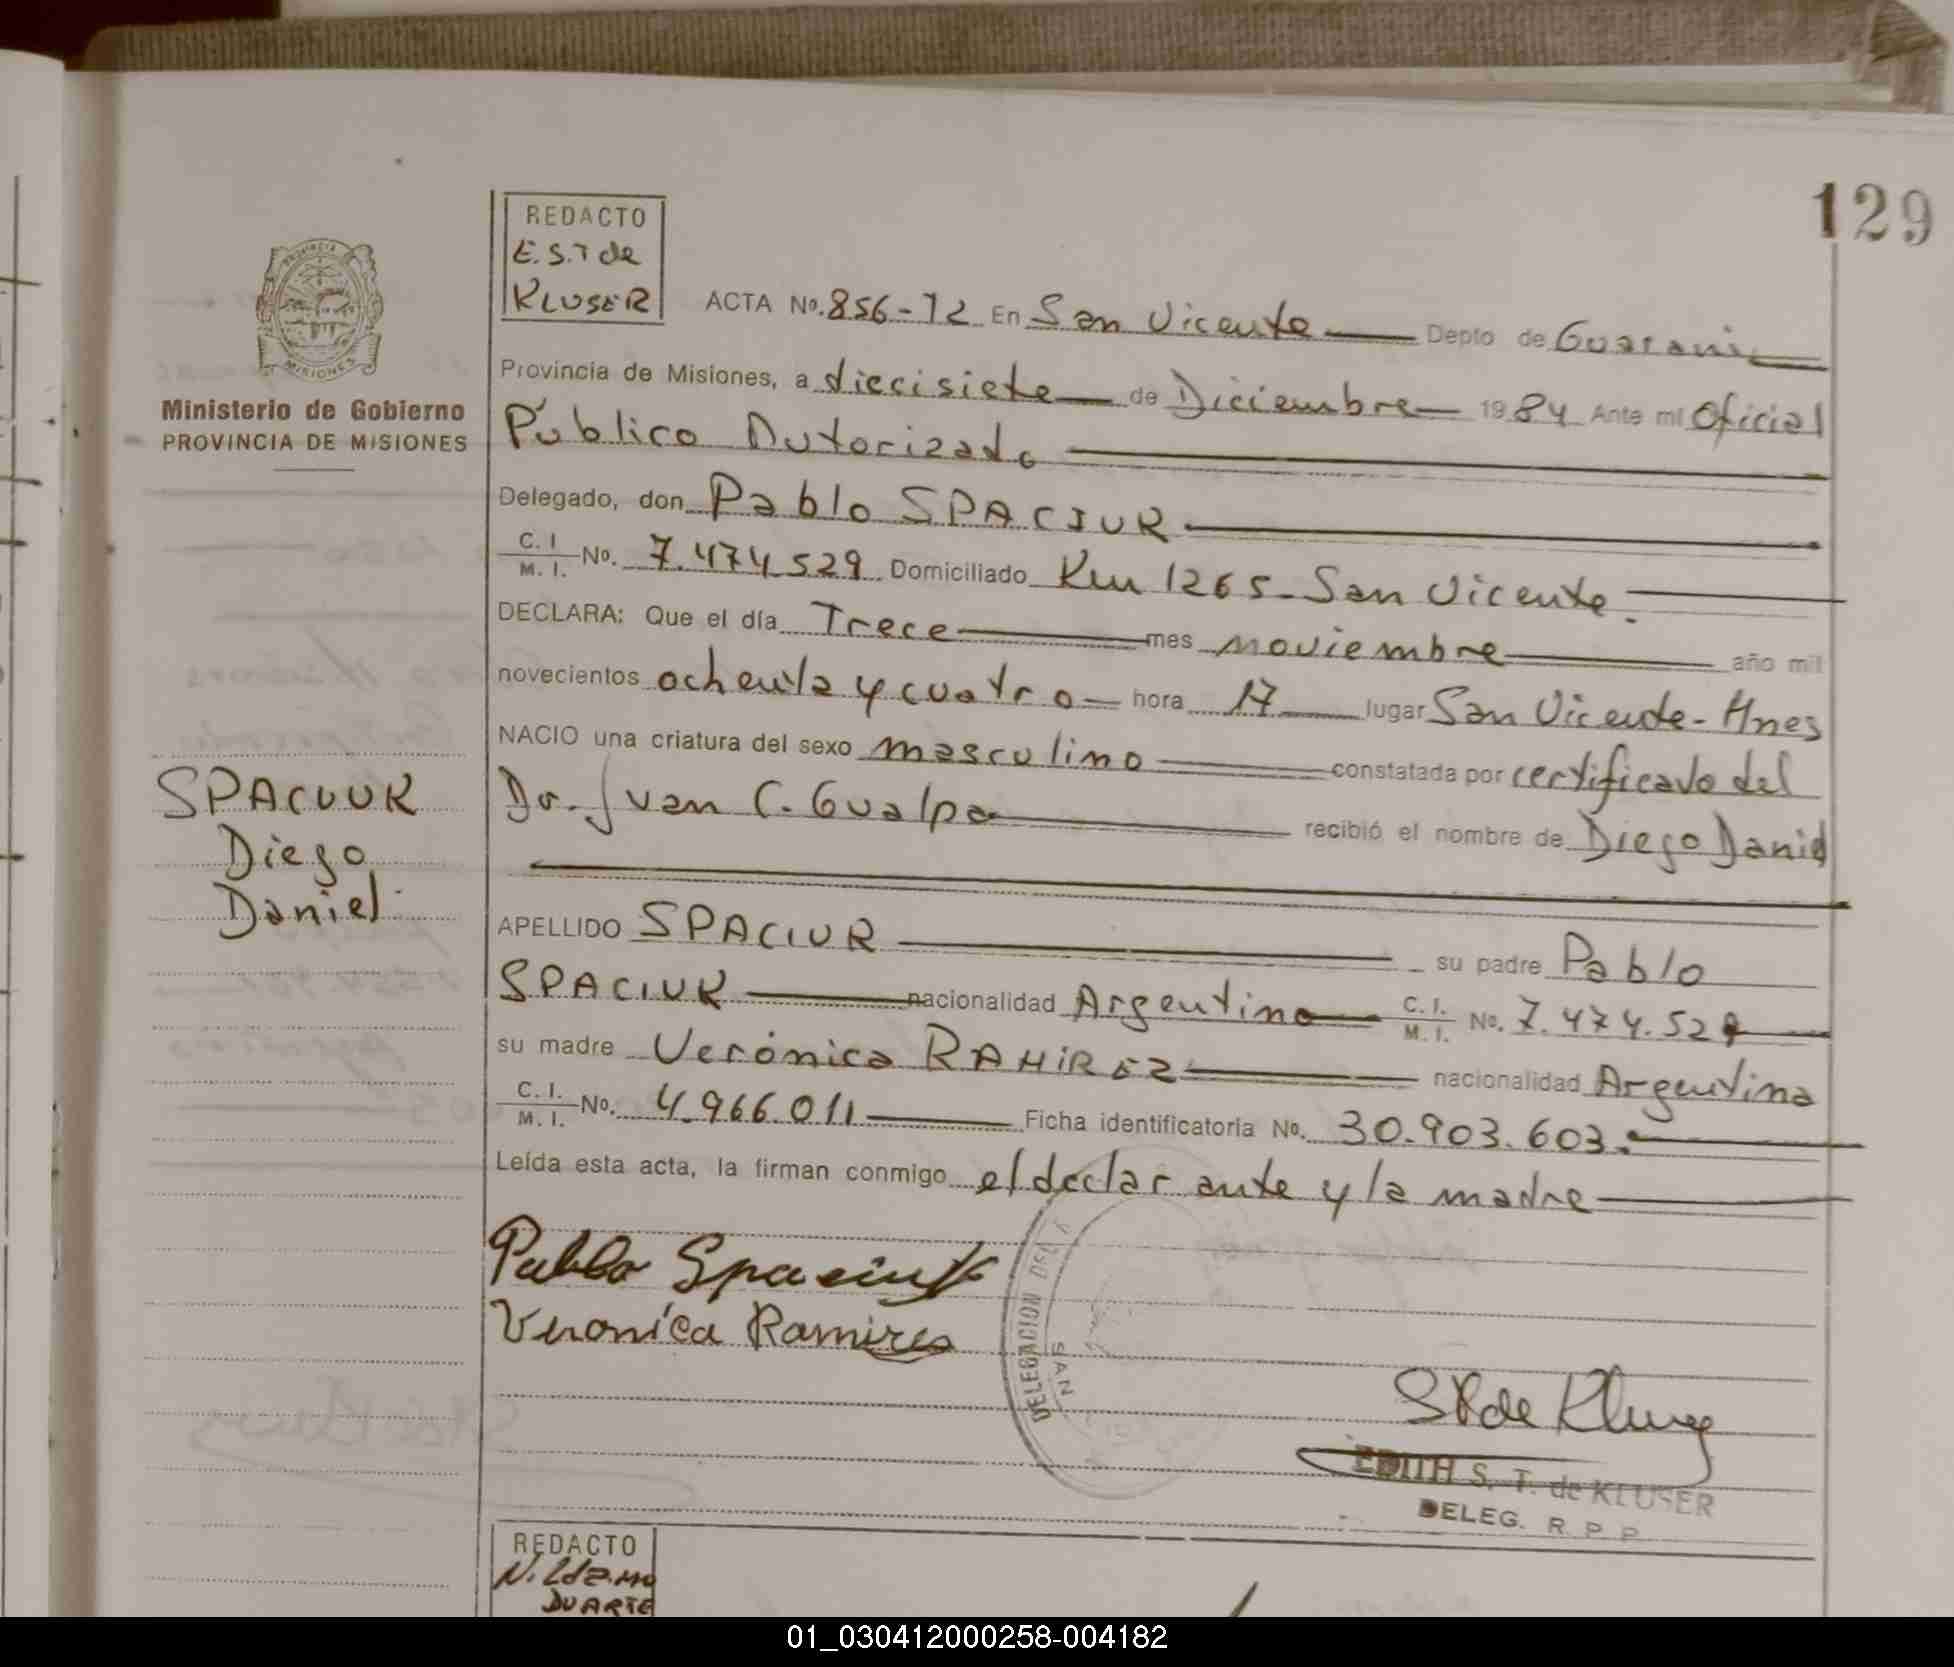 129
REDACTO
E.S.T de
KLUSER
ACTA No. 856-T2 En San Vicente Depto de Guarani
Provincia de Misiones, a diecisiete de Diciembre 1984 Ante mi Oficial
Público Autorizado
Delegado, don Pablo SPACIUR
C. I. / M. I. No. 7.474.529 Domiciliado Km 1265 - San Vicente.
DECLARA: Que el día Trece mes noviembre año mil
novecientos ochenta y cuatro hora 17 lugar San Vicente - Mnes
NACIO una criatura del sexo masculino constatada por certificado del
Dr. Juan C. Gualpa recibió el nombre de Diego Daniel
APELLIDO SPACIUR su padre Pablo
SPACIUR nacionalidad Argentina C. I. / M. I. No. 7.474.529
su madre Verónica RAMIREZ nacionalidad Argentina
C. I. / M. I. No. 4.966.011 Ficha identificatoria No. 30.903.603.
Leída esta acta, la firman conmigo el declarante y la madre
Pablo Spaciuk
Veronica Ramires
DELEGACION DEL
SAN
ST de Kluser
EDITH S. T. de KLUSER
DELEG. R. P. P.
PROVINCIA
MISIONES
Ministerio de Gobierno
PROVINCIA DE MISIONES
SPACIUR
Diego
Daniel
REDACTO
DUARTE
01_030412000258-004182